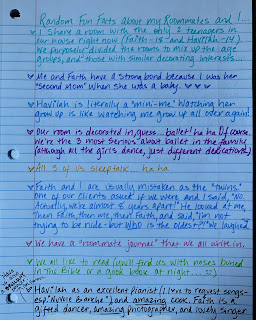 Random Fun Facts about my Roommates and I...
I share a room with the only 2 teenagers in
our house right now (Faith-18- and Havilah-14).
We purposely divided the rooms to mix up the age
groups, and those with similar decorating interests...
Me and Faith have a strong bond because I was her
"Second Mom" when she was a baby. ♥ ♥ ♥ ♥
Havilah is literally a "mini-me". Watching her
grow up is like watching me grow up all over again!
Our room is decorated in, guess... ballet! ha ha Of course.
We're the 3 most serious about ballet in the family
(although all the girls dance, just different dedications.)
All 3 of us sleeptalk... ha ha
Faith and I are usually mistaken as the "twins."
One of our clients asked if we were and I said, "No.
Actually, we're almost 8 years apart." He looked at me,
Then Faith, then me, then Faith, and said, "I'm not
trying to be rude - but WHO is the oldest?!" We laughed.
We have a "roommate journal" that we all write in.
We all like to read (you'll find us with noses buried
in the Bible or a good book at night... :))
Havilah is an excellent pianist (I love to request songs-
esp. "Nuvole Bianche") and amazing cook. Faith is a
gifted dancer, amazing photographer, and lovely singer